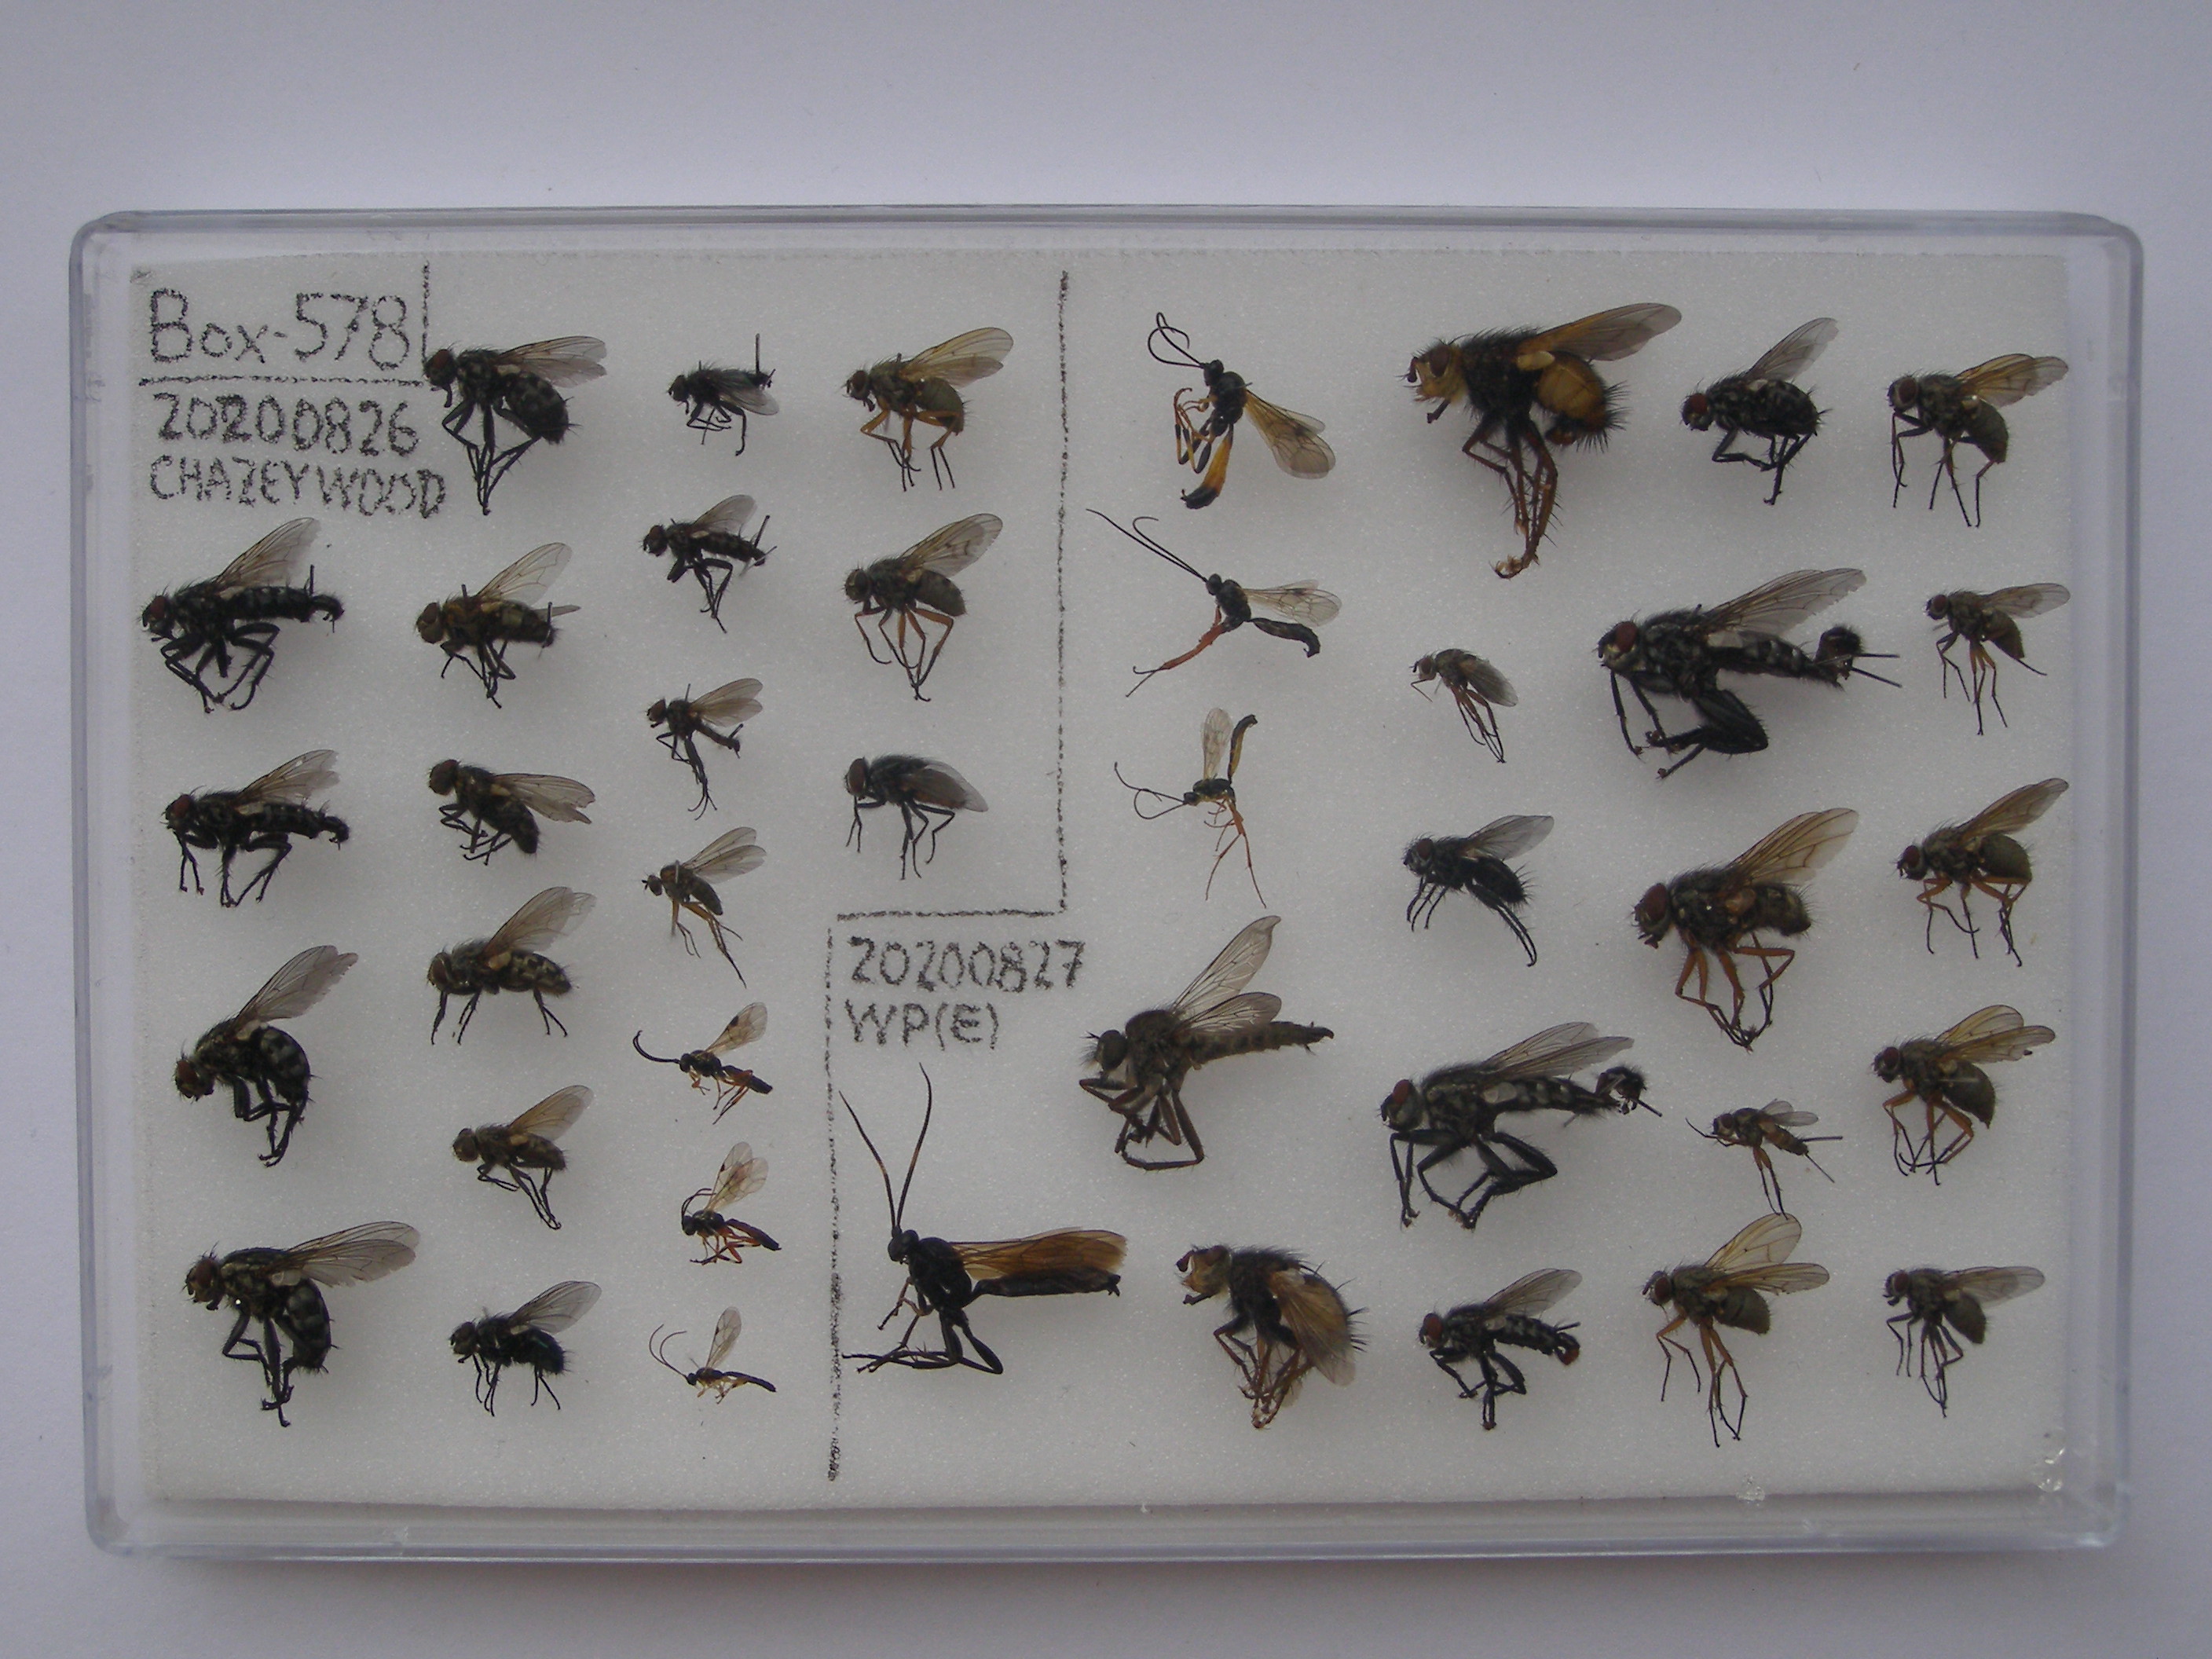 Box-578
20200826
CHAZEYWOOD
20200827
WP(E)